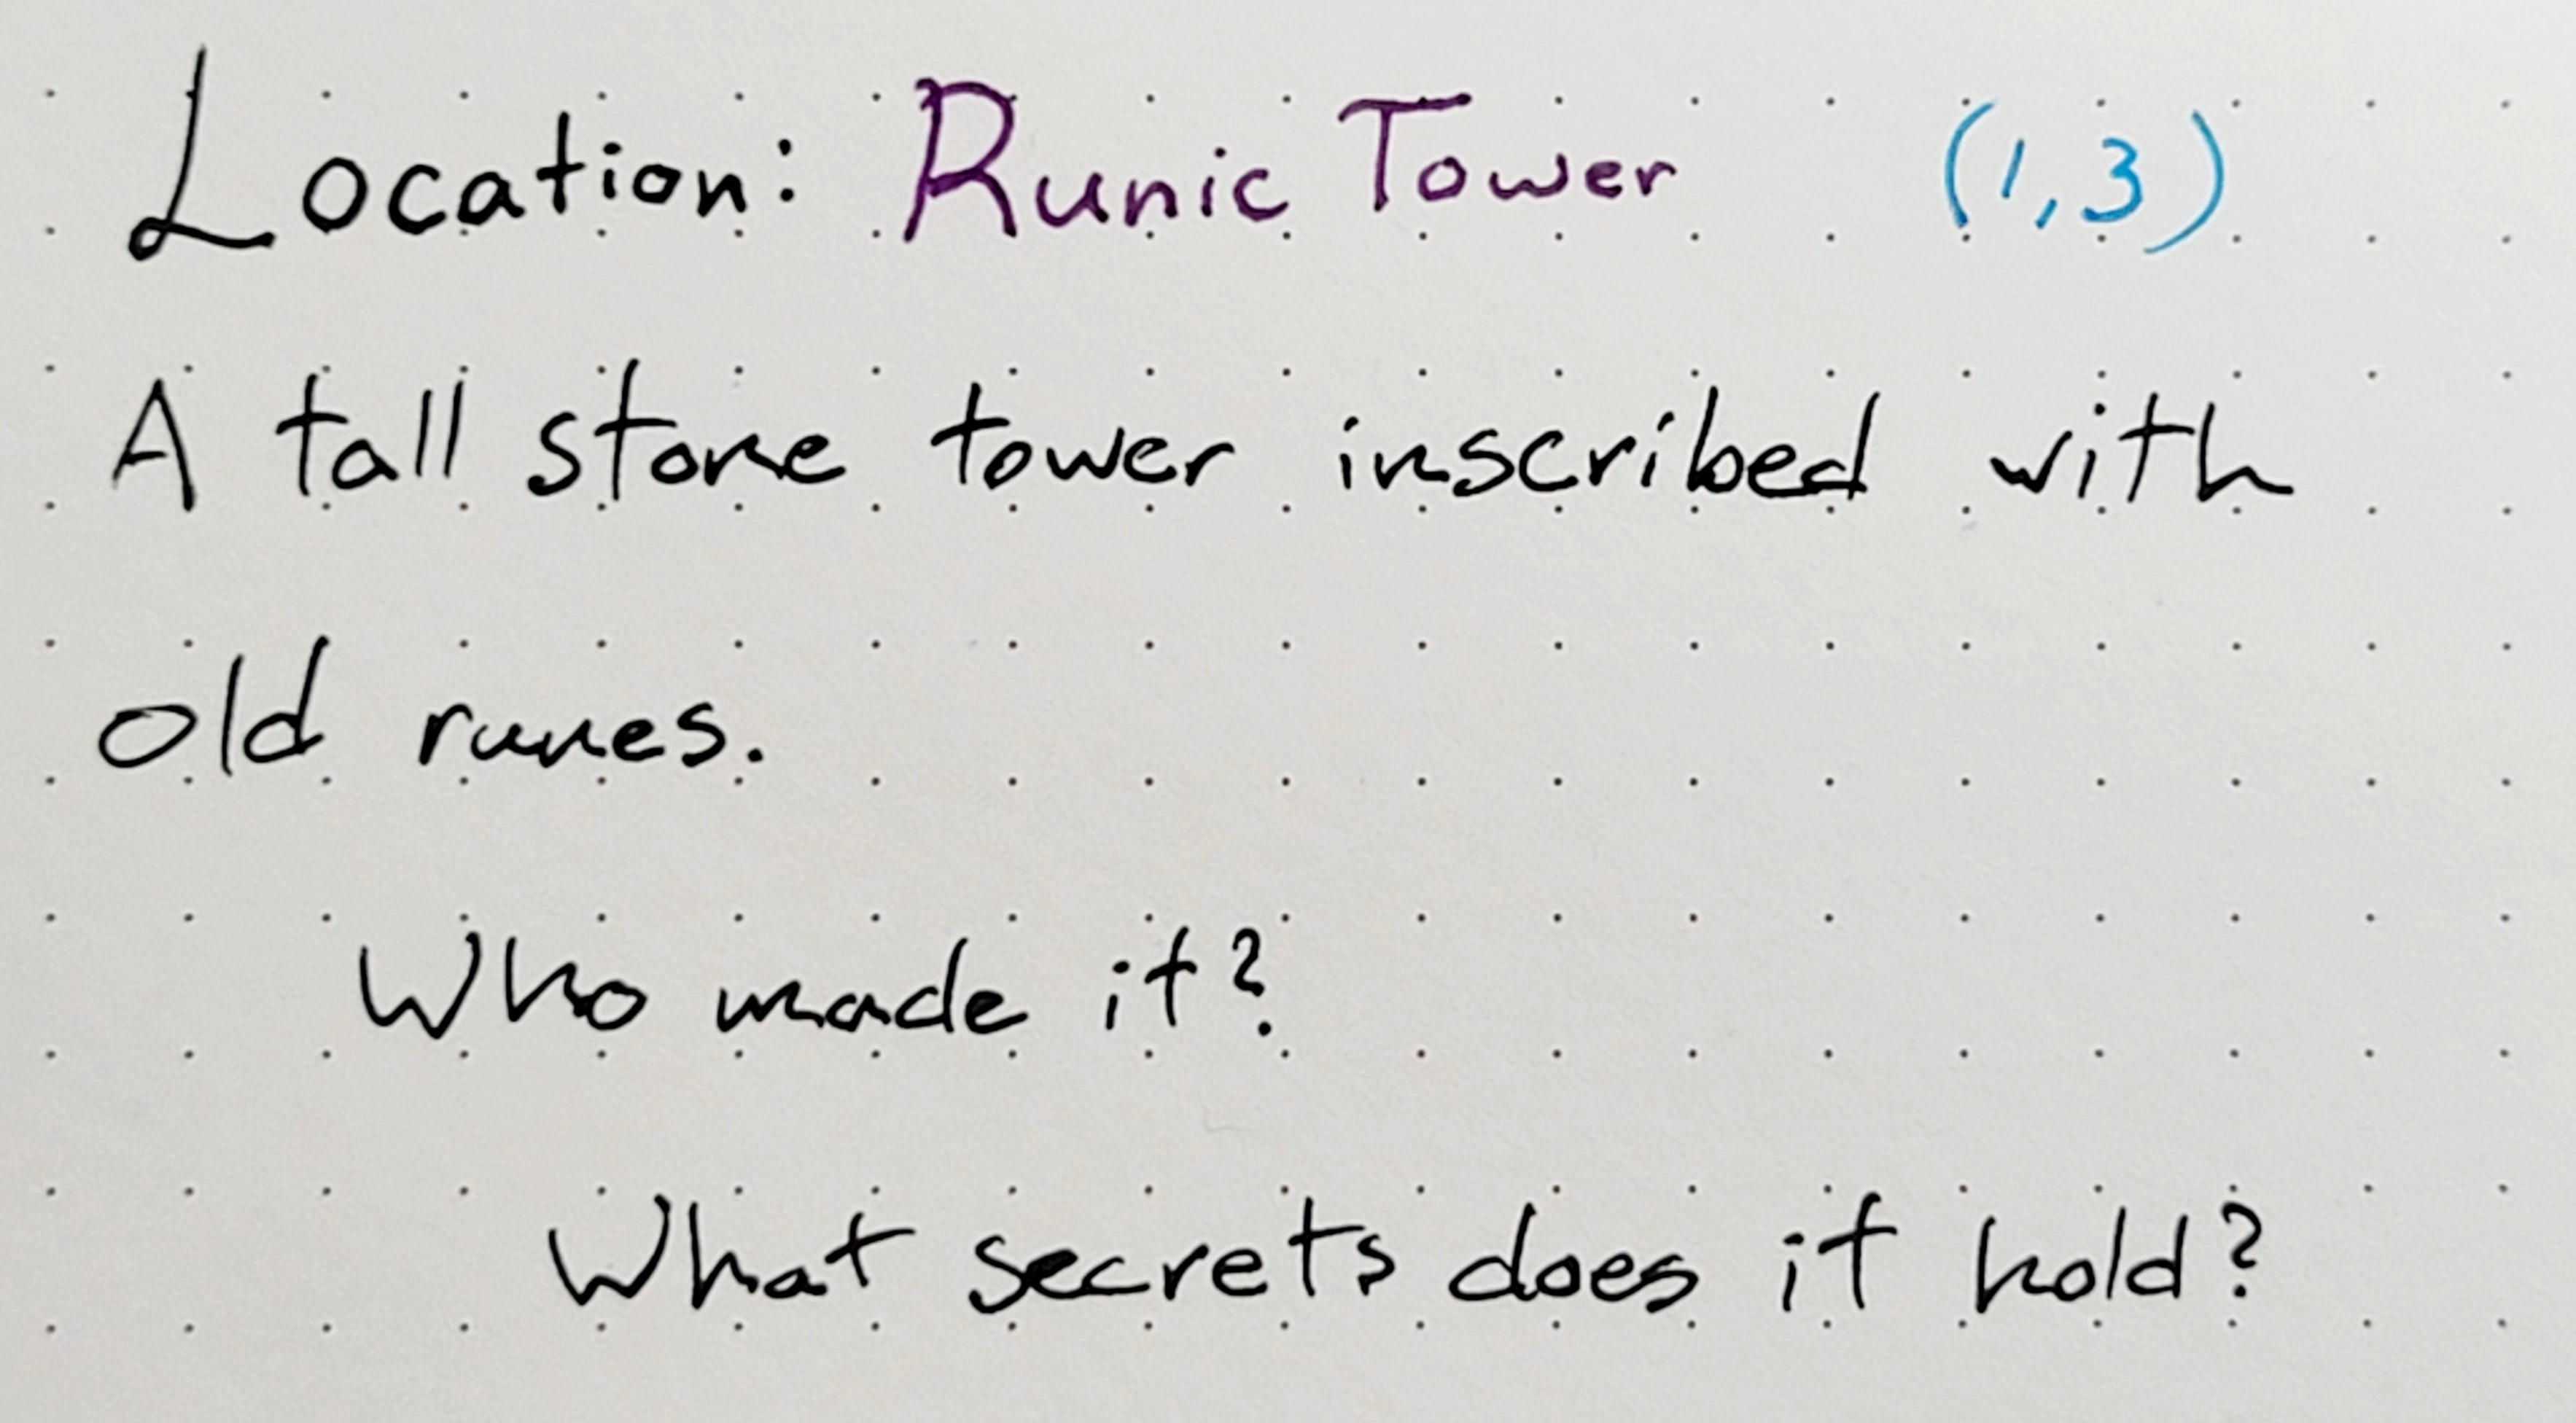 Location: Runic Tower (1,3)
A tall stone tower inscribed with
old runes.
Who made it?
What secrets does it hold?